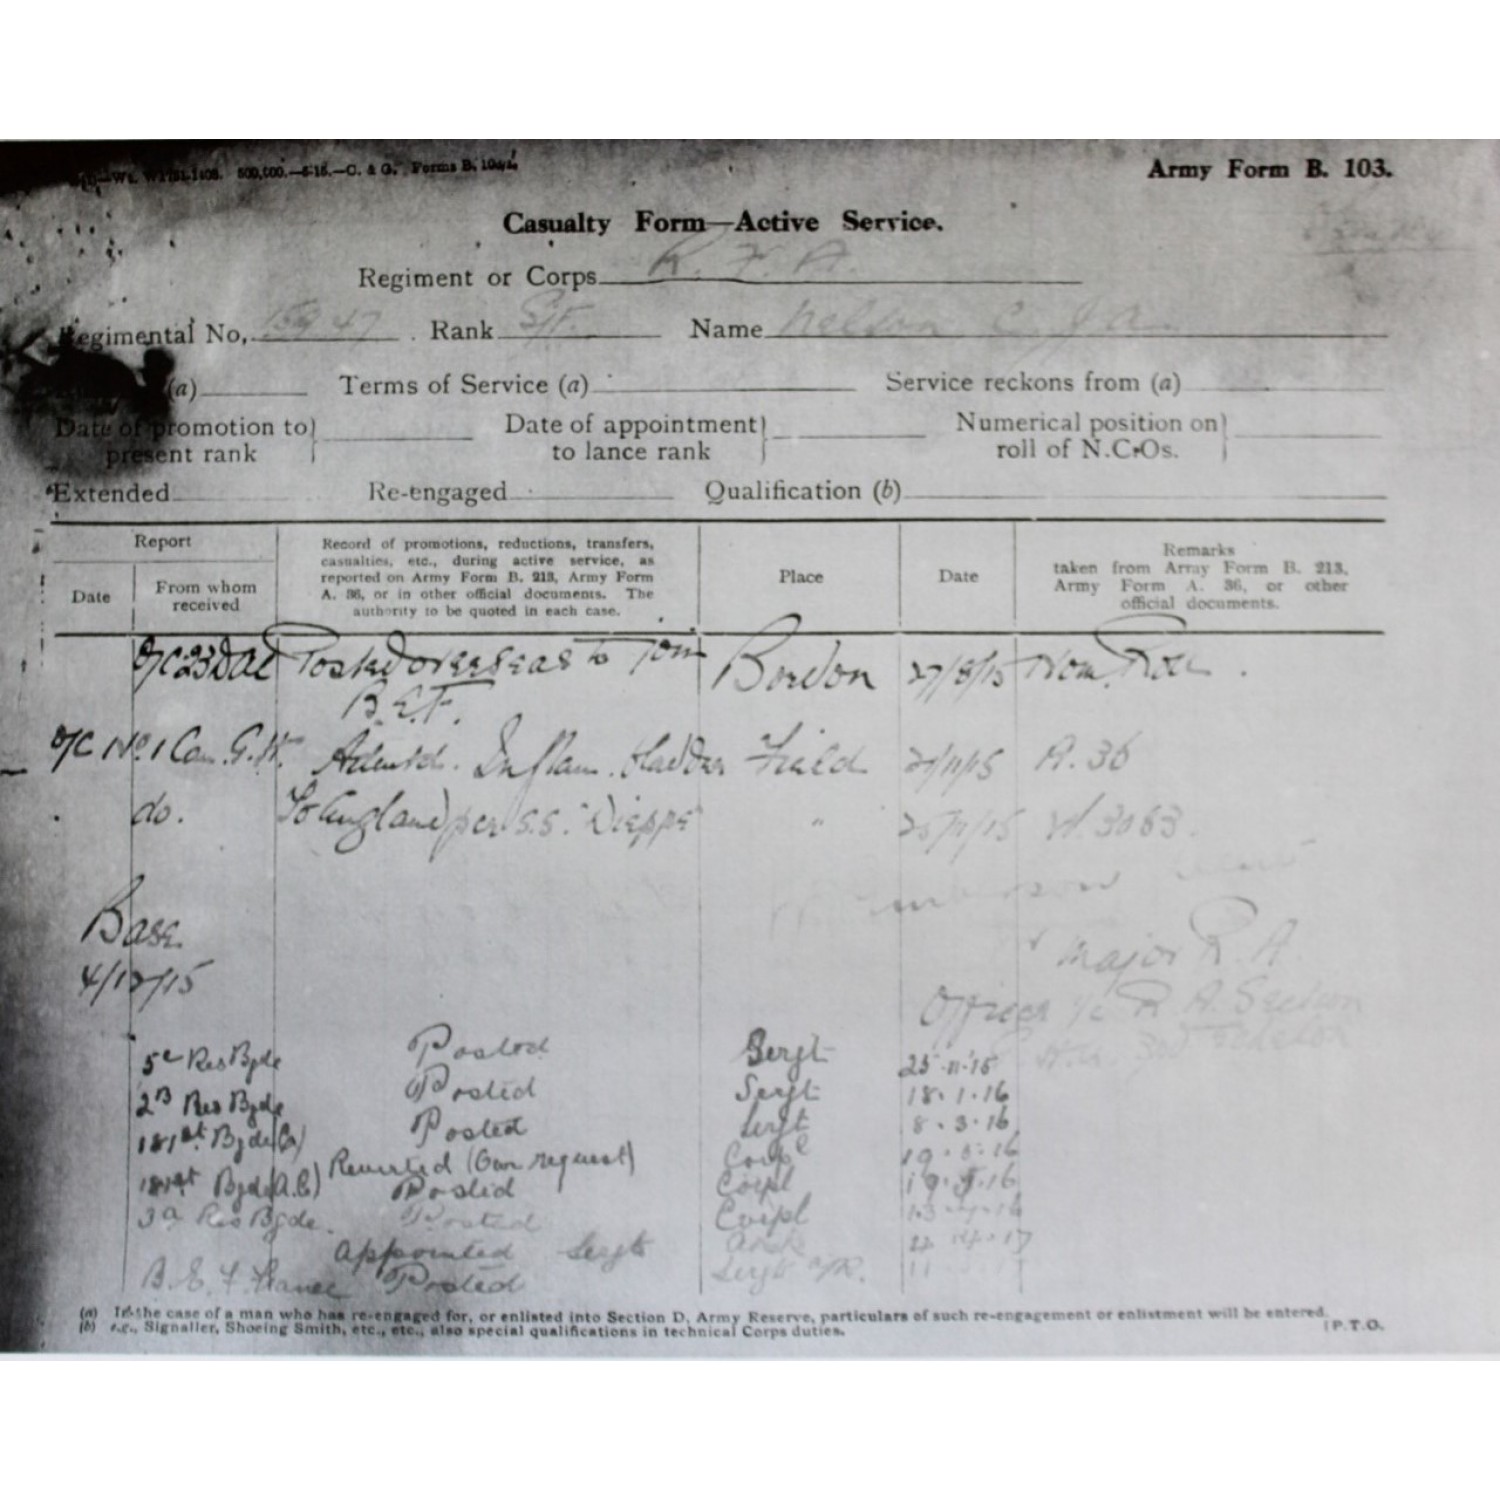 500,000.—5-15.—C. & G. Forms B. 103
Army Form B. 103.
Casualty Form—Active Service.
Regiment or Corps R. F. A.
Regimental No, 15947 . Rank Sjt. Name Nelson C. J A.
(a) Terms of Service (a) Service reckons from (a)
Date of promotion to present rank Date of appointment to lance rank Numerical position on roll of N.C.Os.
Extended Re-engaged Qualification (b)
Report
Date From whom received
Record of promotions, reductions, transfers, casualties, etc., during active service, as reported on Army Form B. 213, Army Form A. 36, or in other official documents. The authority to be quoted in each case.
Place
Date
Remarks
taken from Army Form B. 213, Army Form A. 36, or other official documents.
O/C 23 DAC Posted overseas to Join Bordon 27/8/15 Nom. Roll.
B.E.F.
O/C No. 1 Can. G. H. Admitd. Inflam. bladder Field /11/15 A. 36
do. To England per S.S. "Dieppe" " 25/11/15 W. 3083.
Base.
4/12/15
Major R. A.
Officer i/c R. A. Section
5c Res Bgde Posted Sergt 25.11.15
2B Res Bgde Posted Sergt 18.1.16
181st Bgde Posted Sergt 8.3.16
Reverted (Own request) Corpl 19. .16
181st Bgde (A.C) Posted Corpl 19. .16
3a Res Bgde. Posted Corpl 13. .16
Appointed Sergt
B. E. F France Posted Sergt
(a) In the case of a man who has re-engaged for, or enlisted into Section D, Army Reserve, particulars of such re-engagement or enlistment will be entered.
(b) e.g., Signaller, Shoeing Smith, etc., etc., also special qualifications in technical Corps duties.
[P.T.O.